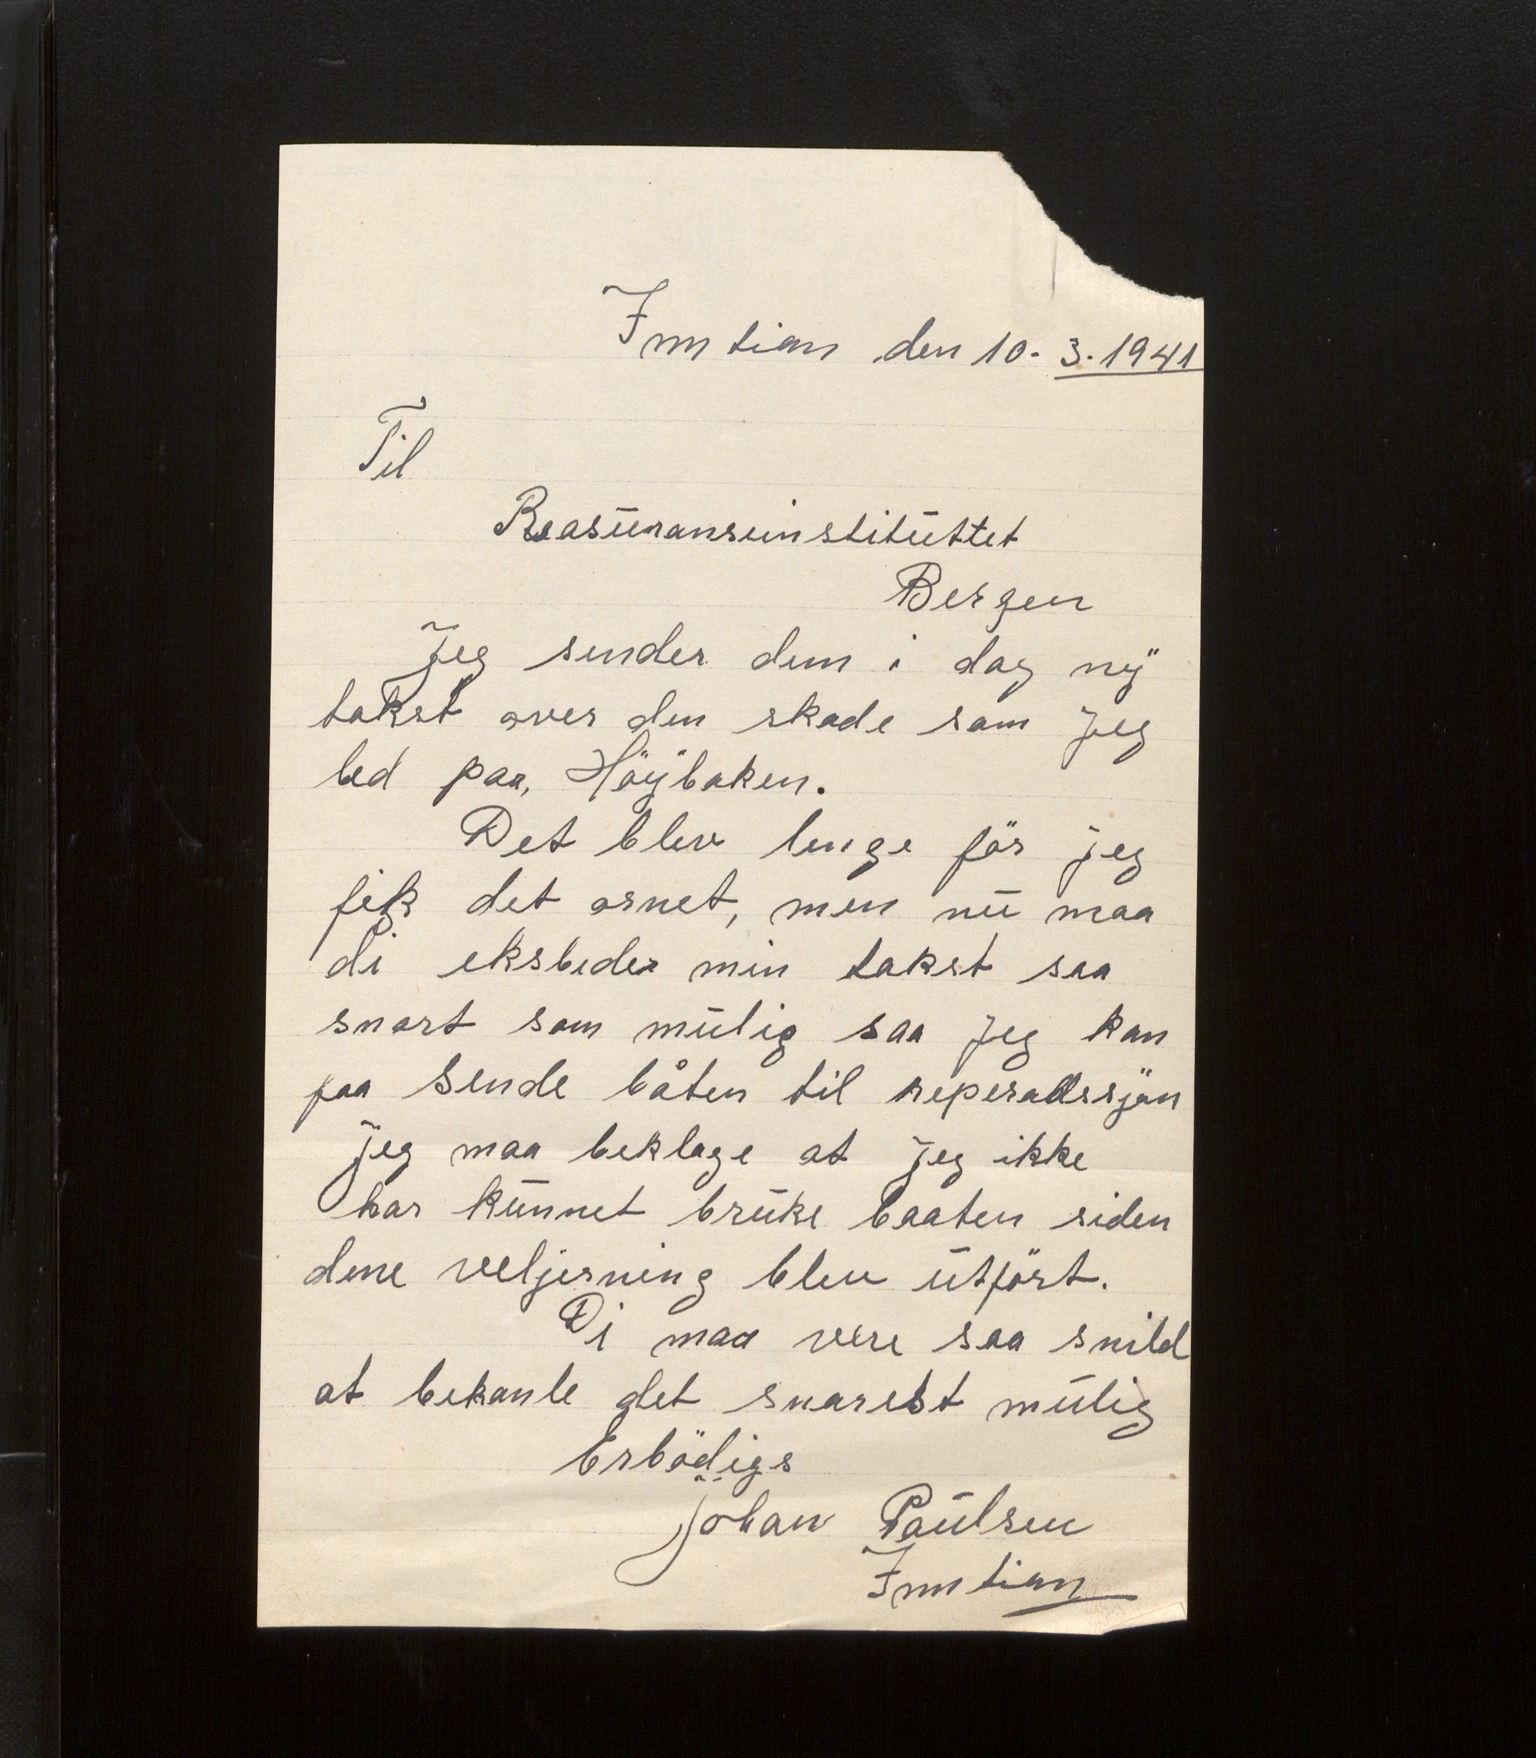 Inntian den 10. 3. 1941
Til
Reasuranseinstituttet
Bergen
Jeg sender dem i dag ny
takst over den skade som jeg
led paa, Höybaken.
Det blev lenge för jeg
fik det ornet, men nu maa
di eksbeder min takst saa
snart som mulig saa jeg kan
faa sende båten til
jeg maa beklage at jeg ikke
har kunnet bruke baaten siden
dene veljerning blev utfört.
Di maa vere saa snild
at bekanle det snarest mulig
Erbödigs
Johan Paulsen
Inntian